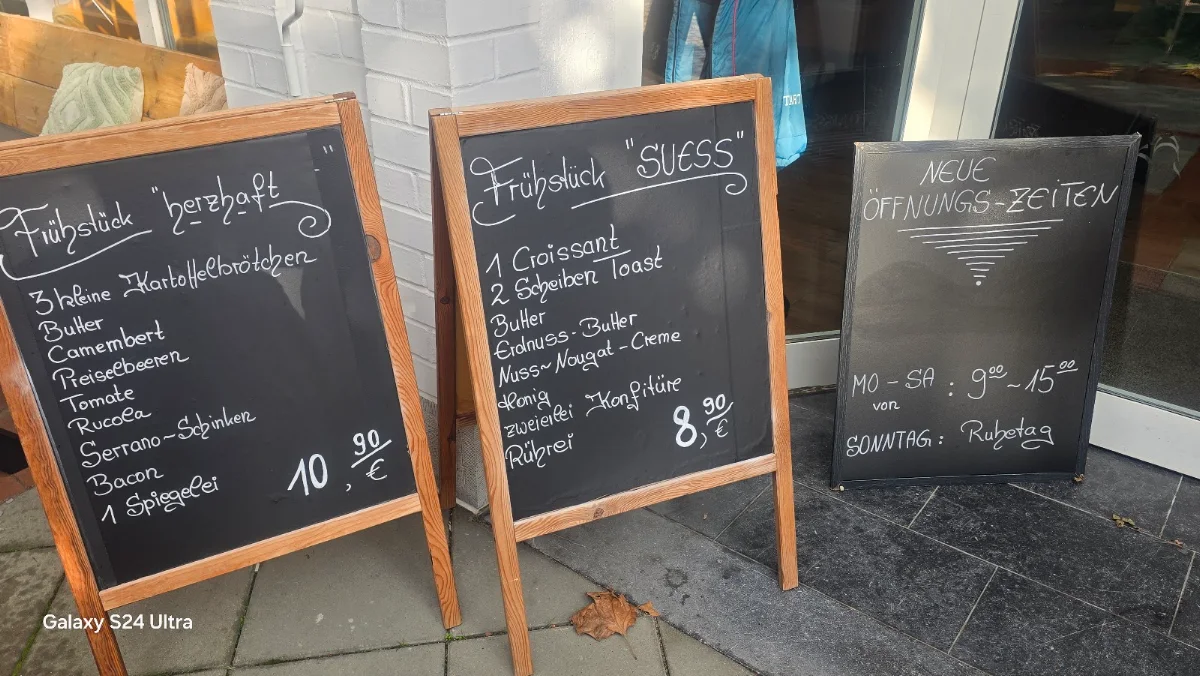 Frühstück "herzhaft"
3 kleine Kartoffelbrötchen
Butter
Camembert
Preiselbeeren
Tomate
Rucola
Serrano-Schinken
Bacon
1 Spiegelei
10,90 €
Frühstück "SUESS"
1 Croissant
2 Scheiben Toast
Butter
Erdnuss-Butter
Nuss-Nougat-Creme
Honig
zweielei Konfitüre
Rührei
8,90 €
NEUE
ÖFFNUNGS-ZEITEN
MO - SA : 9⁰⁰ - 15⁰⁰
von
SONNTAG: Ruhetag
Galaxy S24 Ultra